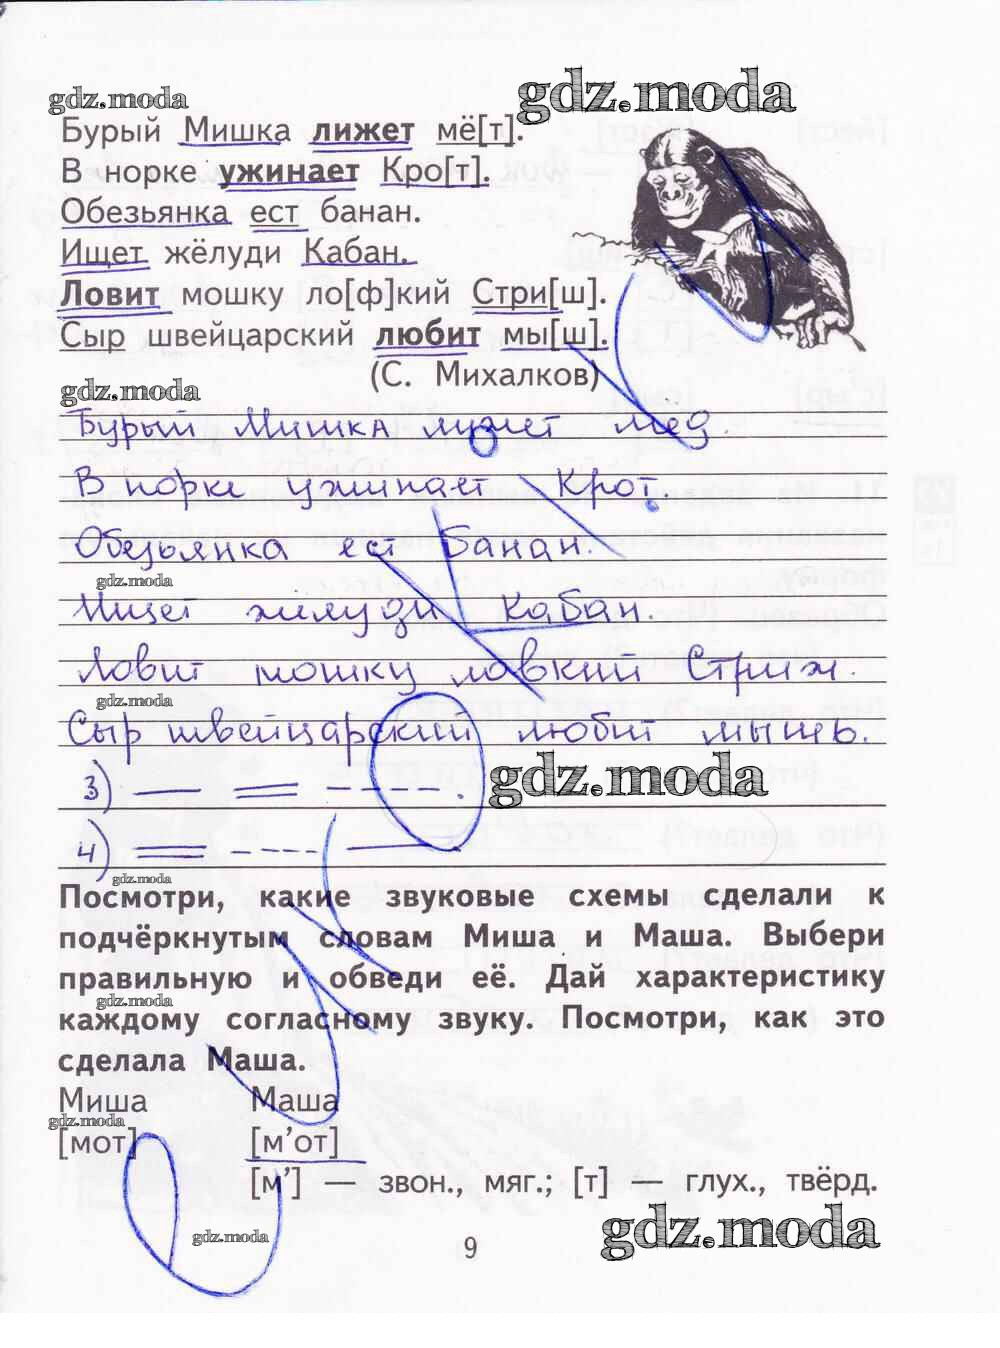 gdz.moda
gdz.moda
Бурый Мишка лижет мё[т].
В норке ужинает Кро[т].
Обезьянка ест банан.
Ищет жёлуди Кабан.
Ловит мошку ло[ф]кий Стри[ш].
Сыр швейцарский любит мы[ш].
(С. Михалков)
gdz.moda
Бурый Мишка лижет мед.
В норке ужинает Крот.
Обезьянка ест банан.
gdz.moda
Ищет жилуди Кабан.
Ловит мошку ловкий Стриж.
gdz.moda
Сыр швейцарский любит мышь.
gdz.moda
3)
4)
gdz.moda
Посмотри, какие звуковые схемы сделали к
подчёркнутым словам Миша и Маша. Выбери
правильную и обведи её. Дай характеристику
gdz.moda
каждому согласному звуку. Посмотри, как это
сделала Маша.
Миша Маша
gdz.moda
[мот] [м’от]
[м’] — звон., мяг.; [т] — глух., твёрд.
gdz.moda
gdz.moda
9